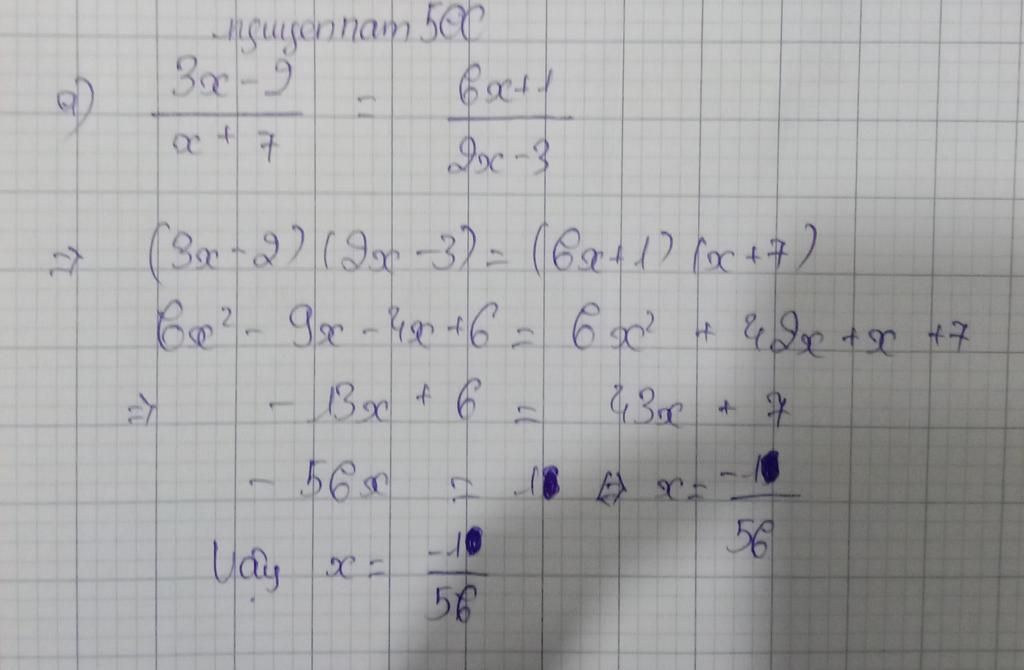 a) \frac{3x-2}{x+7} = \frac{6x+1}{2x-3}
=> (3x-2) (2x-3) = (6x+1) (x+7)
6x² - 9x - 4x + 6 = 6x² + 42x + x + 7
=> - 13x + 6 = 43x + 7
- 56x = 1 <=> x = \frac{-1}{56}
Vậy x = \frac{-1}{56}